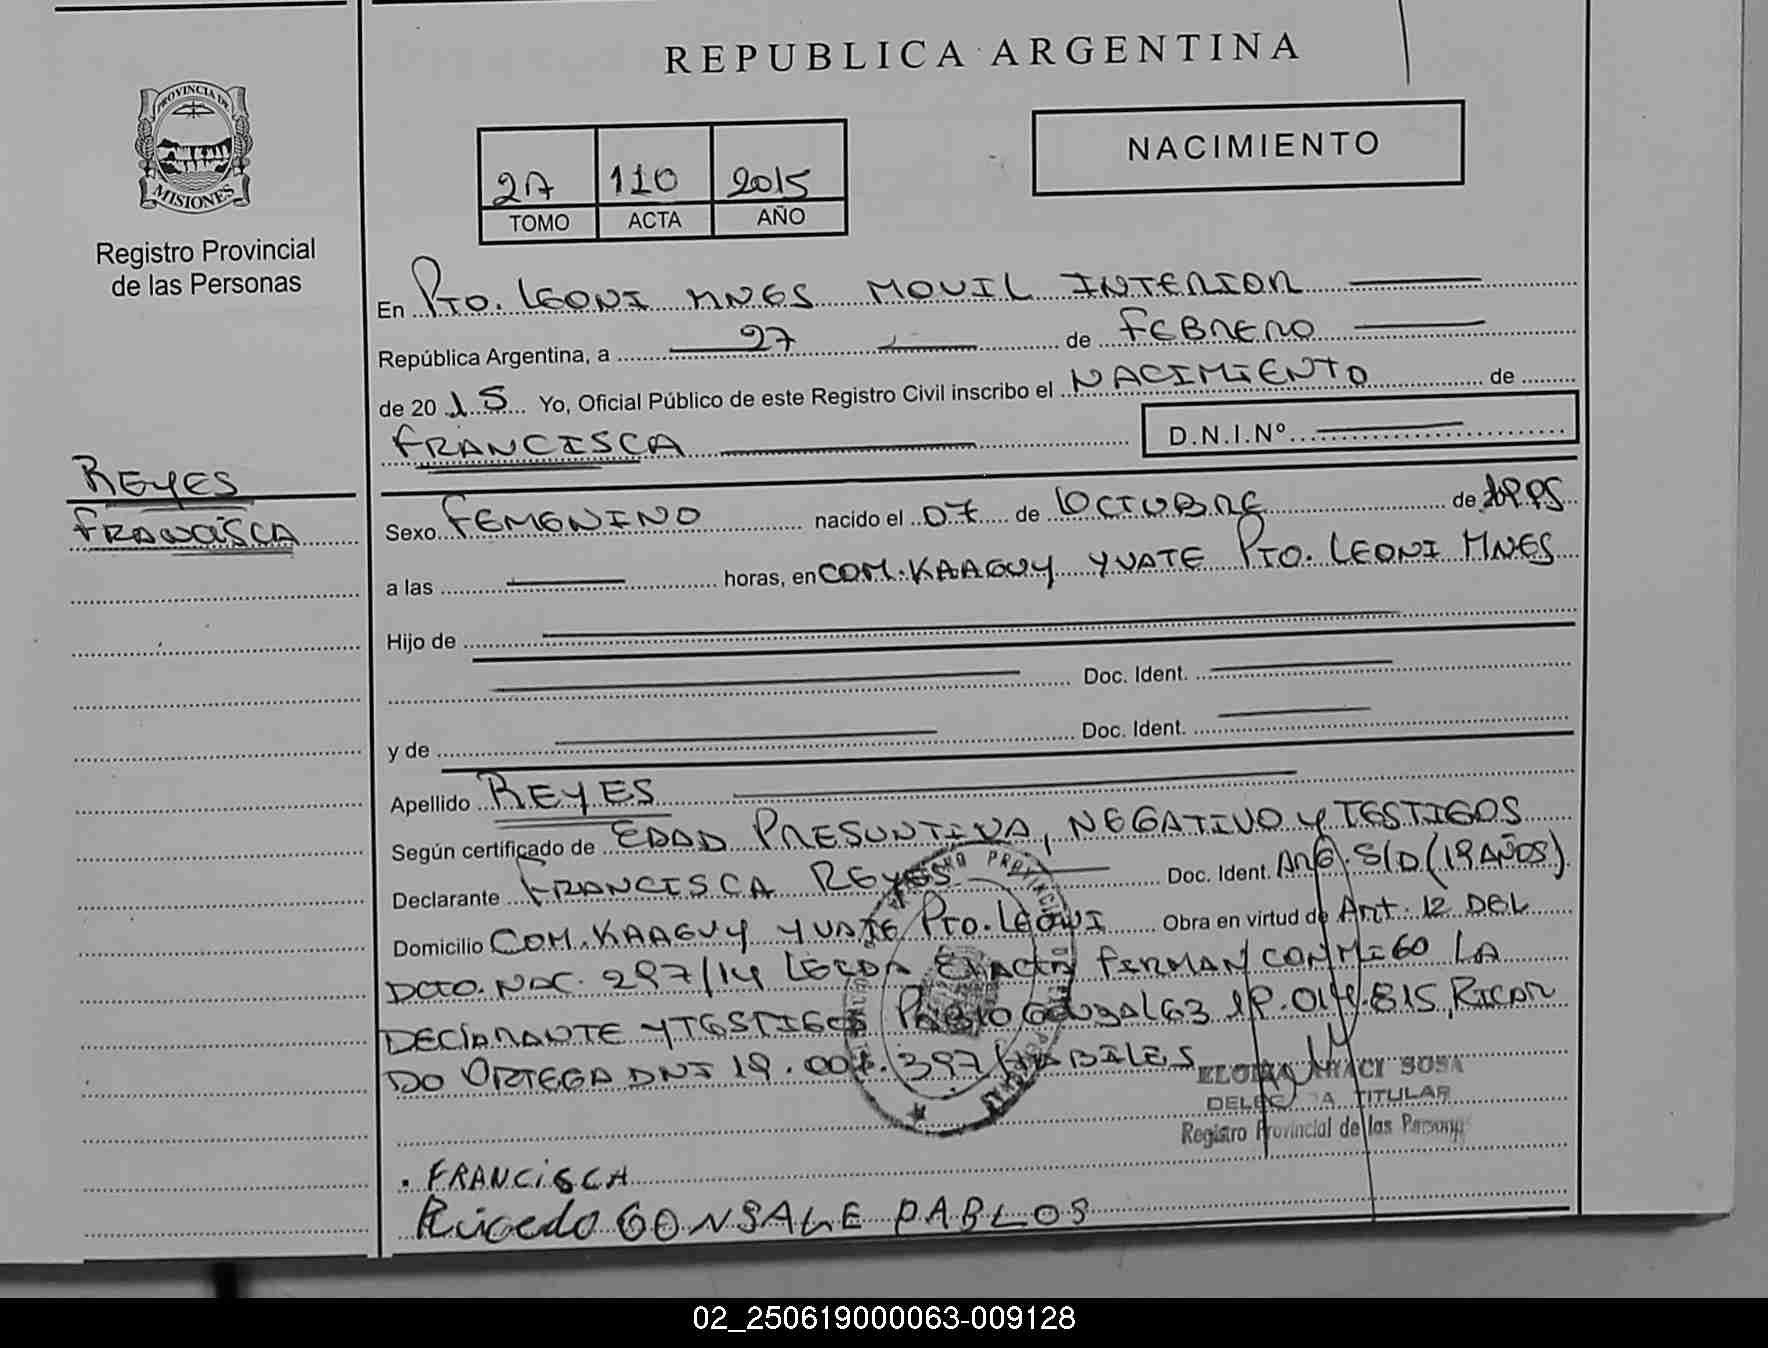 REPUBLICA ARGENTINA
PROVINCIA DE
MISIONES
Registro Provincial
de las Personas
NACIMIENTO
2A 110 2015
TOMO ACTA AÑO
En PTO. LEONI MNES MOVIL INTERIOR
República Argentina, a 27 de FEBRERO
de 2015 Yo, Oficial Público de este Registro Civil inscribo el NACIMIENTO de
FRANCISCA D.N.I.Nº
REYES
FRANCISCA
Sexo FEMENINO nacido el 07 de OCTUBRE de 1995
a las horas, en COM. KAAGUY YVATE PTO. LEONI MNES
Hijo de
Doc. Ident.
y de Doc. Ident.
Apellido REYES
Según certificado de EDAD PRESUNTIVA, NEGATIVO Y TESTIGOS
Declarante FRANCISCA REYES Doc. Ident. ARG. S/D (19 AÑOS)
Domicilio COM. KAAGUY YVATE PTO. LEONI Obra en virtud de Art. 12 DEL
DCTO. NAC. 297/14 LEIDA EL ACTA FIRMAN CONMIGO LA
DECLARANTE Y TESTIGOS PABLO 19.014.815, RICAR
DO ORTEGA DNI 19.007.397 HABILES
SOSA
TITULAR
Registro Provincial de las Personas
. FRANCISCA
Ricedo GONSALE PABLOS
02_250619000063-009128